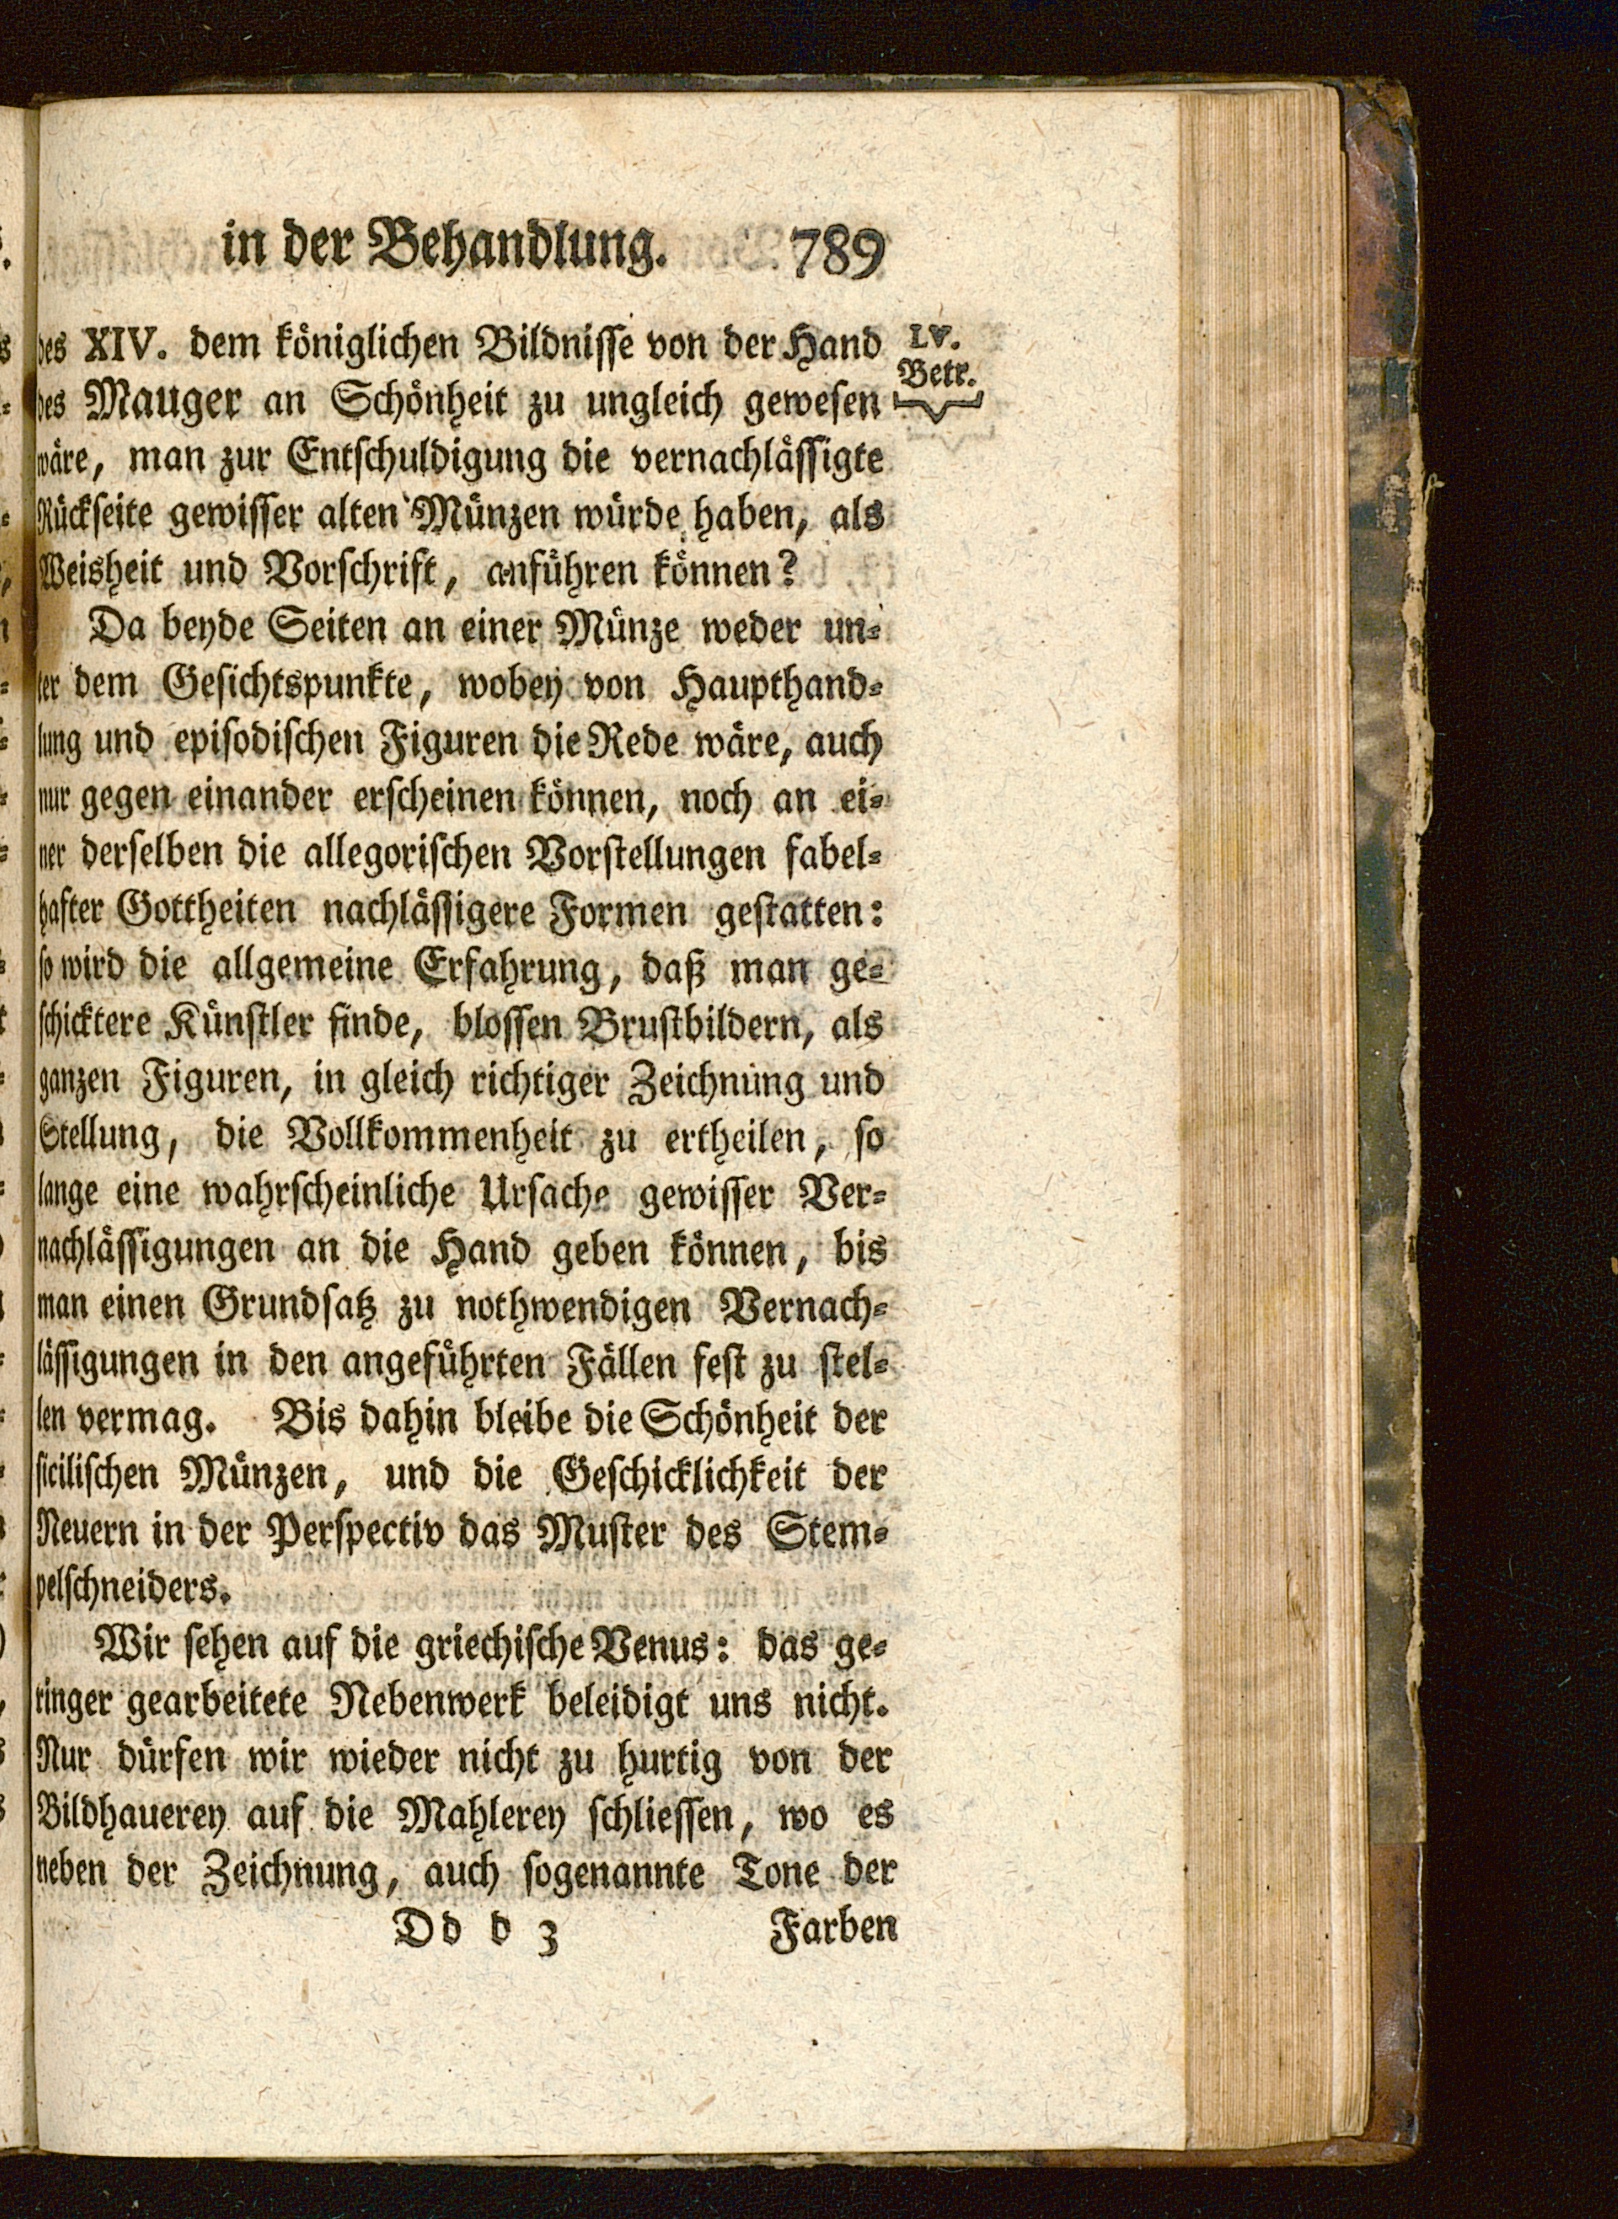 in der Behandlung. 789
des XIV. dem königlichen Bildnisse von der Hand
LV.
Betr.
des Mauger an Schönheit zu ungleich gewesen
wäre, man zur Entschuldigung die vernachlässigte
Rückseite gewisser alten Münzen würde haben, als
Weisheit und Vorschrift, anführen können?
Da beyde Seiten an einer Münze weder un-
ter dem Gesichtspunkte, wobey von Haupthand-
lung und episodischen Figuren die Rede wäre, auch
nur gegen einander erscheinen können, noch an ei-
ner derselben die allegorischen Vorstellungen fabel-
hafter Gottheiten nachlässigere Formen gestatten:
so wird die allgemeine Erfahrung, daß man ge-
schicktere Künstler finde, blossen Brustbildern, als
ganzen Figuren, in gleich richtiger Zeichnung und
Stellung, die Vollkommenheit zu ertheilen, so
lange eine wahrscheinliche Ursache gewisser Ver-
nachlässigungen an die Hand geben können, bis
man einen Grundsatz zu nothwendigen Vernach-
lässigungen in den angeführten Fällen fest zu stel-
len vermag. Bis dahin bleibe die Schönheit der
sicilischen Münzen, und die Geschicklichkeit der
Neuern in der Perspectiv das Muster des Stem-
pelschneiders.
Wir sehen auf die griechische Venus: das ge-
ringer gearbeitete Nebenwerk beleidigt uns nicht.
Nur dürfen wir wieder nicht zu hurtig von der
Bildhauerey auf die Mahlerey schliessen, wo es
neben der Zeichnung, auch sogenannte Tone der
Dd d 3 Farben